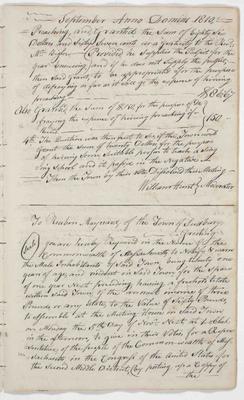 September Anno Domini 1812
Preaching, and Granted the Sum of Eighty six
Dollars and Sixty Seven cents as a gratuity to the Revd
Mr. Provided he Supplies the Pulpit for the
year ensuing and if he does not Supply the pulpit,
then Said Grant to be appropriated for the purpose
of defraying as far as of the expense of hireing
preaching $86.67
Also Granted the Sum of $150, for the purpose of de-
fraying the expense of hireing preaching if 150
need
4th The Question was then put to See if the Town would
Grant the Sum of twenty Dollars for the purpose
of hireing Some Suitable person to teach a Sing-
ing School and it passed in the Negative
Then the Town by their vote Dissolved their Meeting
William Hunt Moderator
To Reuben Maynard of the Town of Sudbury
Greeting
you are hereby Required in the Name of the
Commonwealth of Massachusetts to Notify & warn
the Male Inhabitants of Said Town being twenty one
years of age, and resident in Said Town for the Space
of one year Next preceding, having a freehold Estate
within Said Town of the annual income of three
Pounds or any Estate to the Value of Sixty Pounds
to assemble at the Meeting House in Said Town
on Monday the Day of Novr Next at Clock
in the afternoon, to give in their Votes for a Repre-
sentative of the people of the Commonwealth of Mas-
sachusetts in the Congress of the United States for
the Second Middle District, (by posting up a Copy of
the